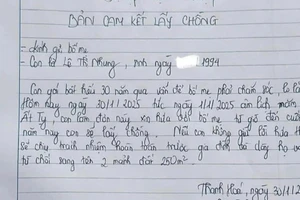 BẢN CAM KẾT LẤY CHỒNG
- Kính gửi bố mẹ
- Con là Lê Thị Nhung, sinh ngày 1994
Con gái bố hiểu 30 năm qua vẫn để bố mẹ phải chăm sóc, lo
Hôm nay ngày 30/1/2025 tức ngày 1/1/2025 âm lịch mùng
Ất Tỵ con làm đơn này xin hứa với bố mẹ từ giờ đến cuối
năm nay con sẽ lấy chồng. Nếu con không giữ lời hứa
sẽ chịu trách nhiệm hoàn toàn trước gia đình và dòng họ
từ chối sang tên 2 mảnh đất 250m²
Thanh Hoá, ngày 30/1/2